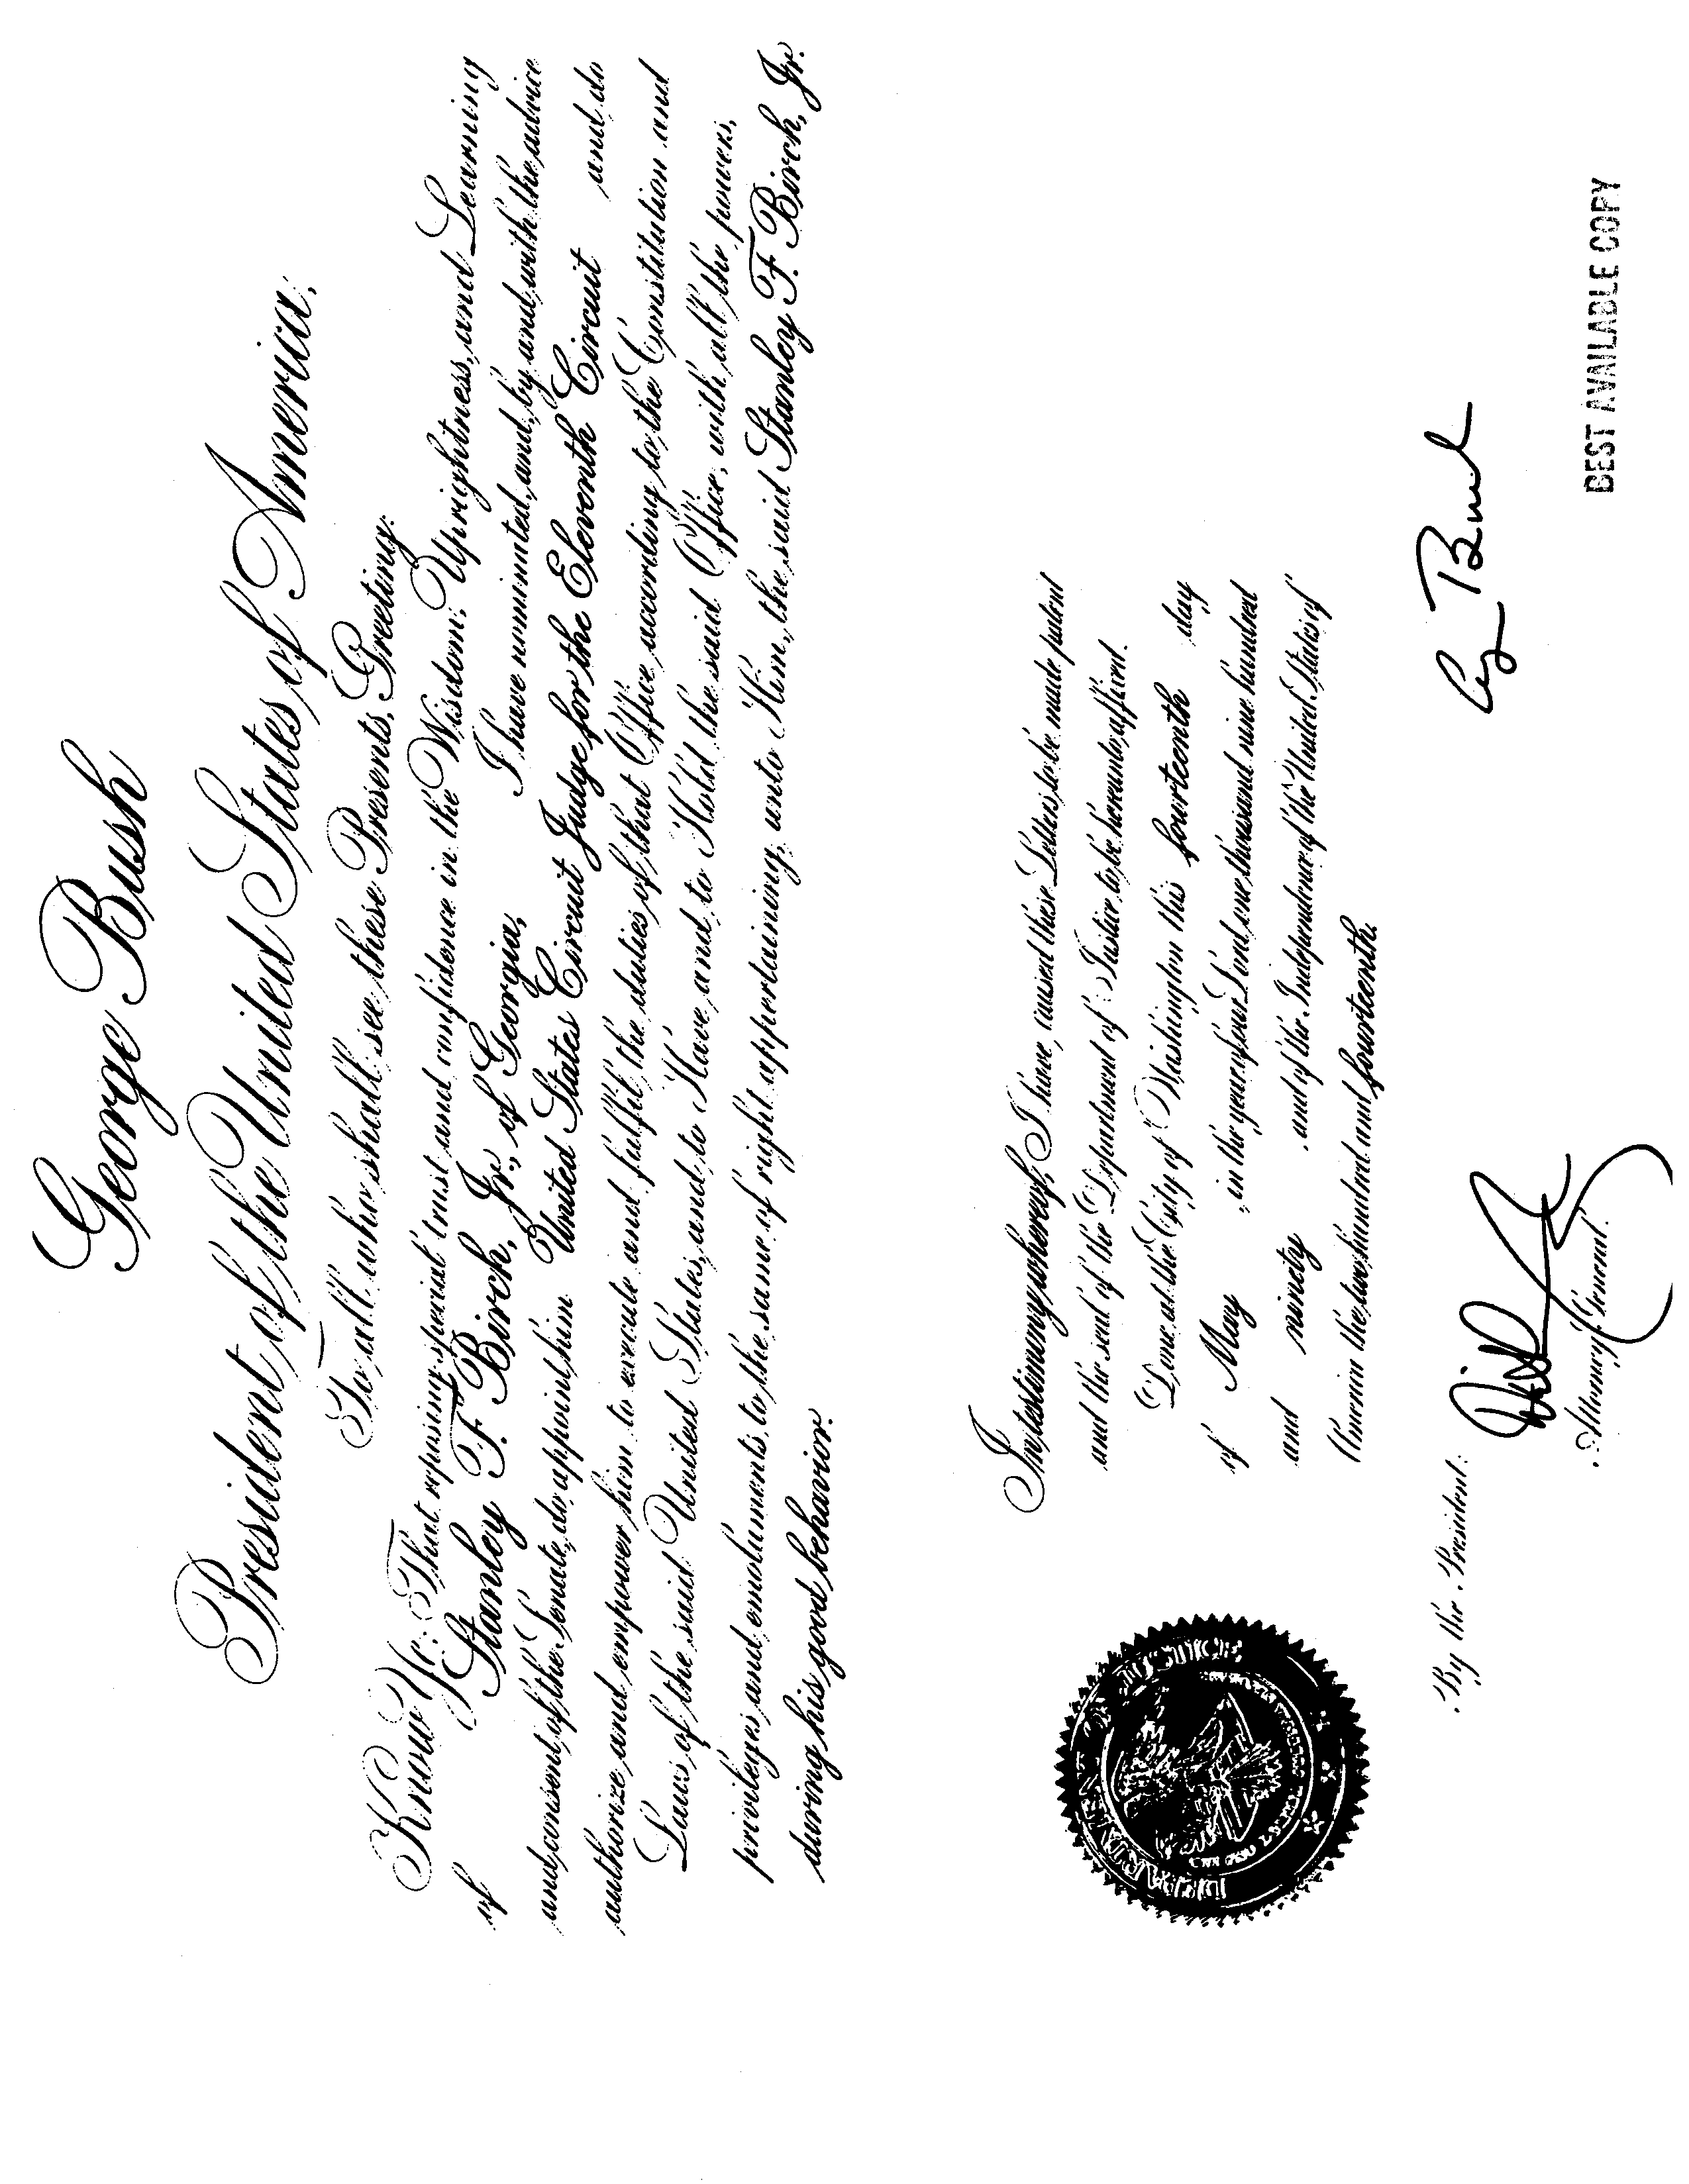 George Bush
President of the United States of America,
To all who shall see these Presents, Greeting:
Know Ye: That reposing special trust and confidence in the Wisdom, Uprightness, and Learning
of Stanley F. Birch, Jr., of Georgia, I have nominated, and, by and with the advice
and consent of the Senate, do appoint him United States Circuit Judge for the Eleventh Circuit and do
authorize and empower him to execute and fulfil the duties of that Office according to the Constitution and
Laws of the said United States, and to Have and to Hold the said Office, with all the powers,
privileges and emoluments to the same of right appertaining, unto Him, the said Stanley F. Birch, Jr.
during his good behavior.
In testimony whereof, I have caused these Letters to be made patent
and the seal of the Department of Justice to be hereunto affixed.
Done at the City of Washington this fourteenth day
of May, in the year of our Lord one thousand nine hundred
and ninety and of the Independence of the United States of
America the two hundred and fourteenth.
G Bush
By the President:
Attorney General.
BEST AVAILABLE COPY